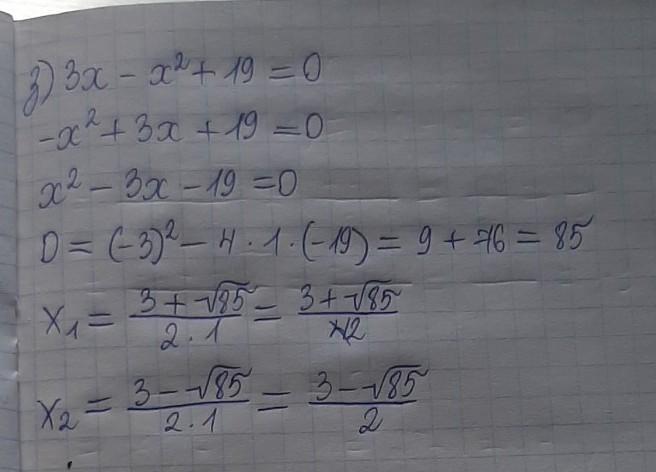 з) 3x - x² + 19 = 0
-x² + 3x + 19 = 0
x² - 3x - 19 = 0
D = (-3)² - 4 · 1 · (-19) = 9 + 76 = 85
x₁ = (3 + √85)/(2 · 1) = (3 + √85)/2
x₂ = (3 - √85)/(2 · 1) = (3 - √85)/2